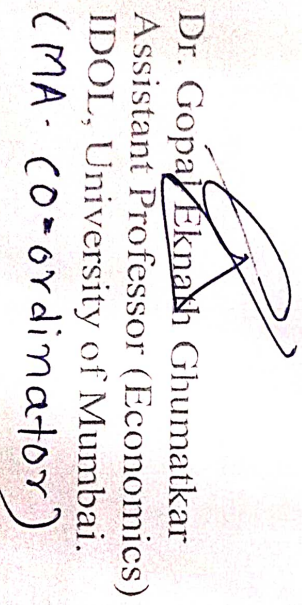 Dr. Gopal Eknath Ghumatkar
Assistant Professor (Economics)
IDOL, University of Mumbai.
(MA. CO-ordinator)